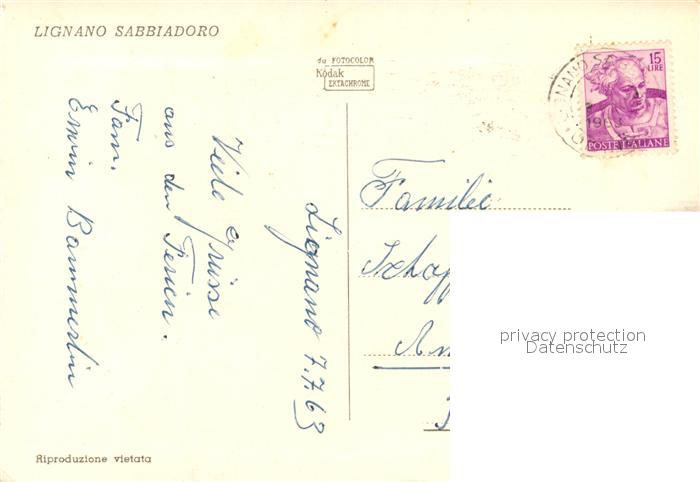 LIGNANO SABBIADORO
da FOTOCOLOR
Kodak
EKTACHROME
15
LIRE
POSTE ITALIANE
1963
Lignano 7.7.63
Viele Grüsse
aus den Ferien.
Fam.
Erwin
Familie
privacy protection
Datenschutz
Riproduzione vietata